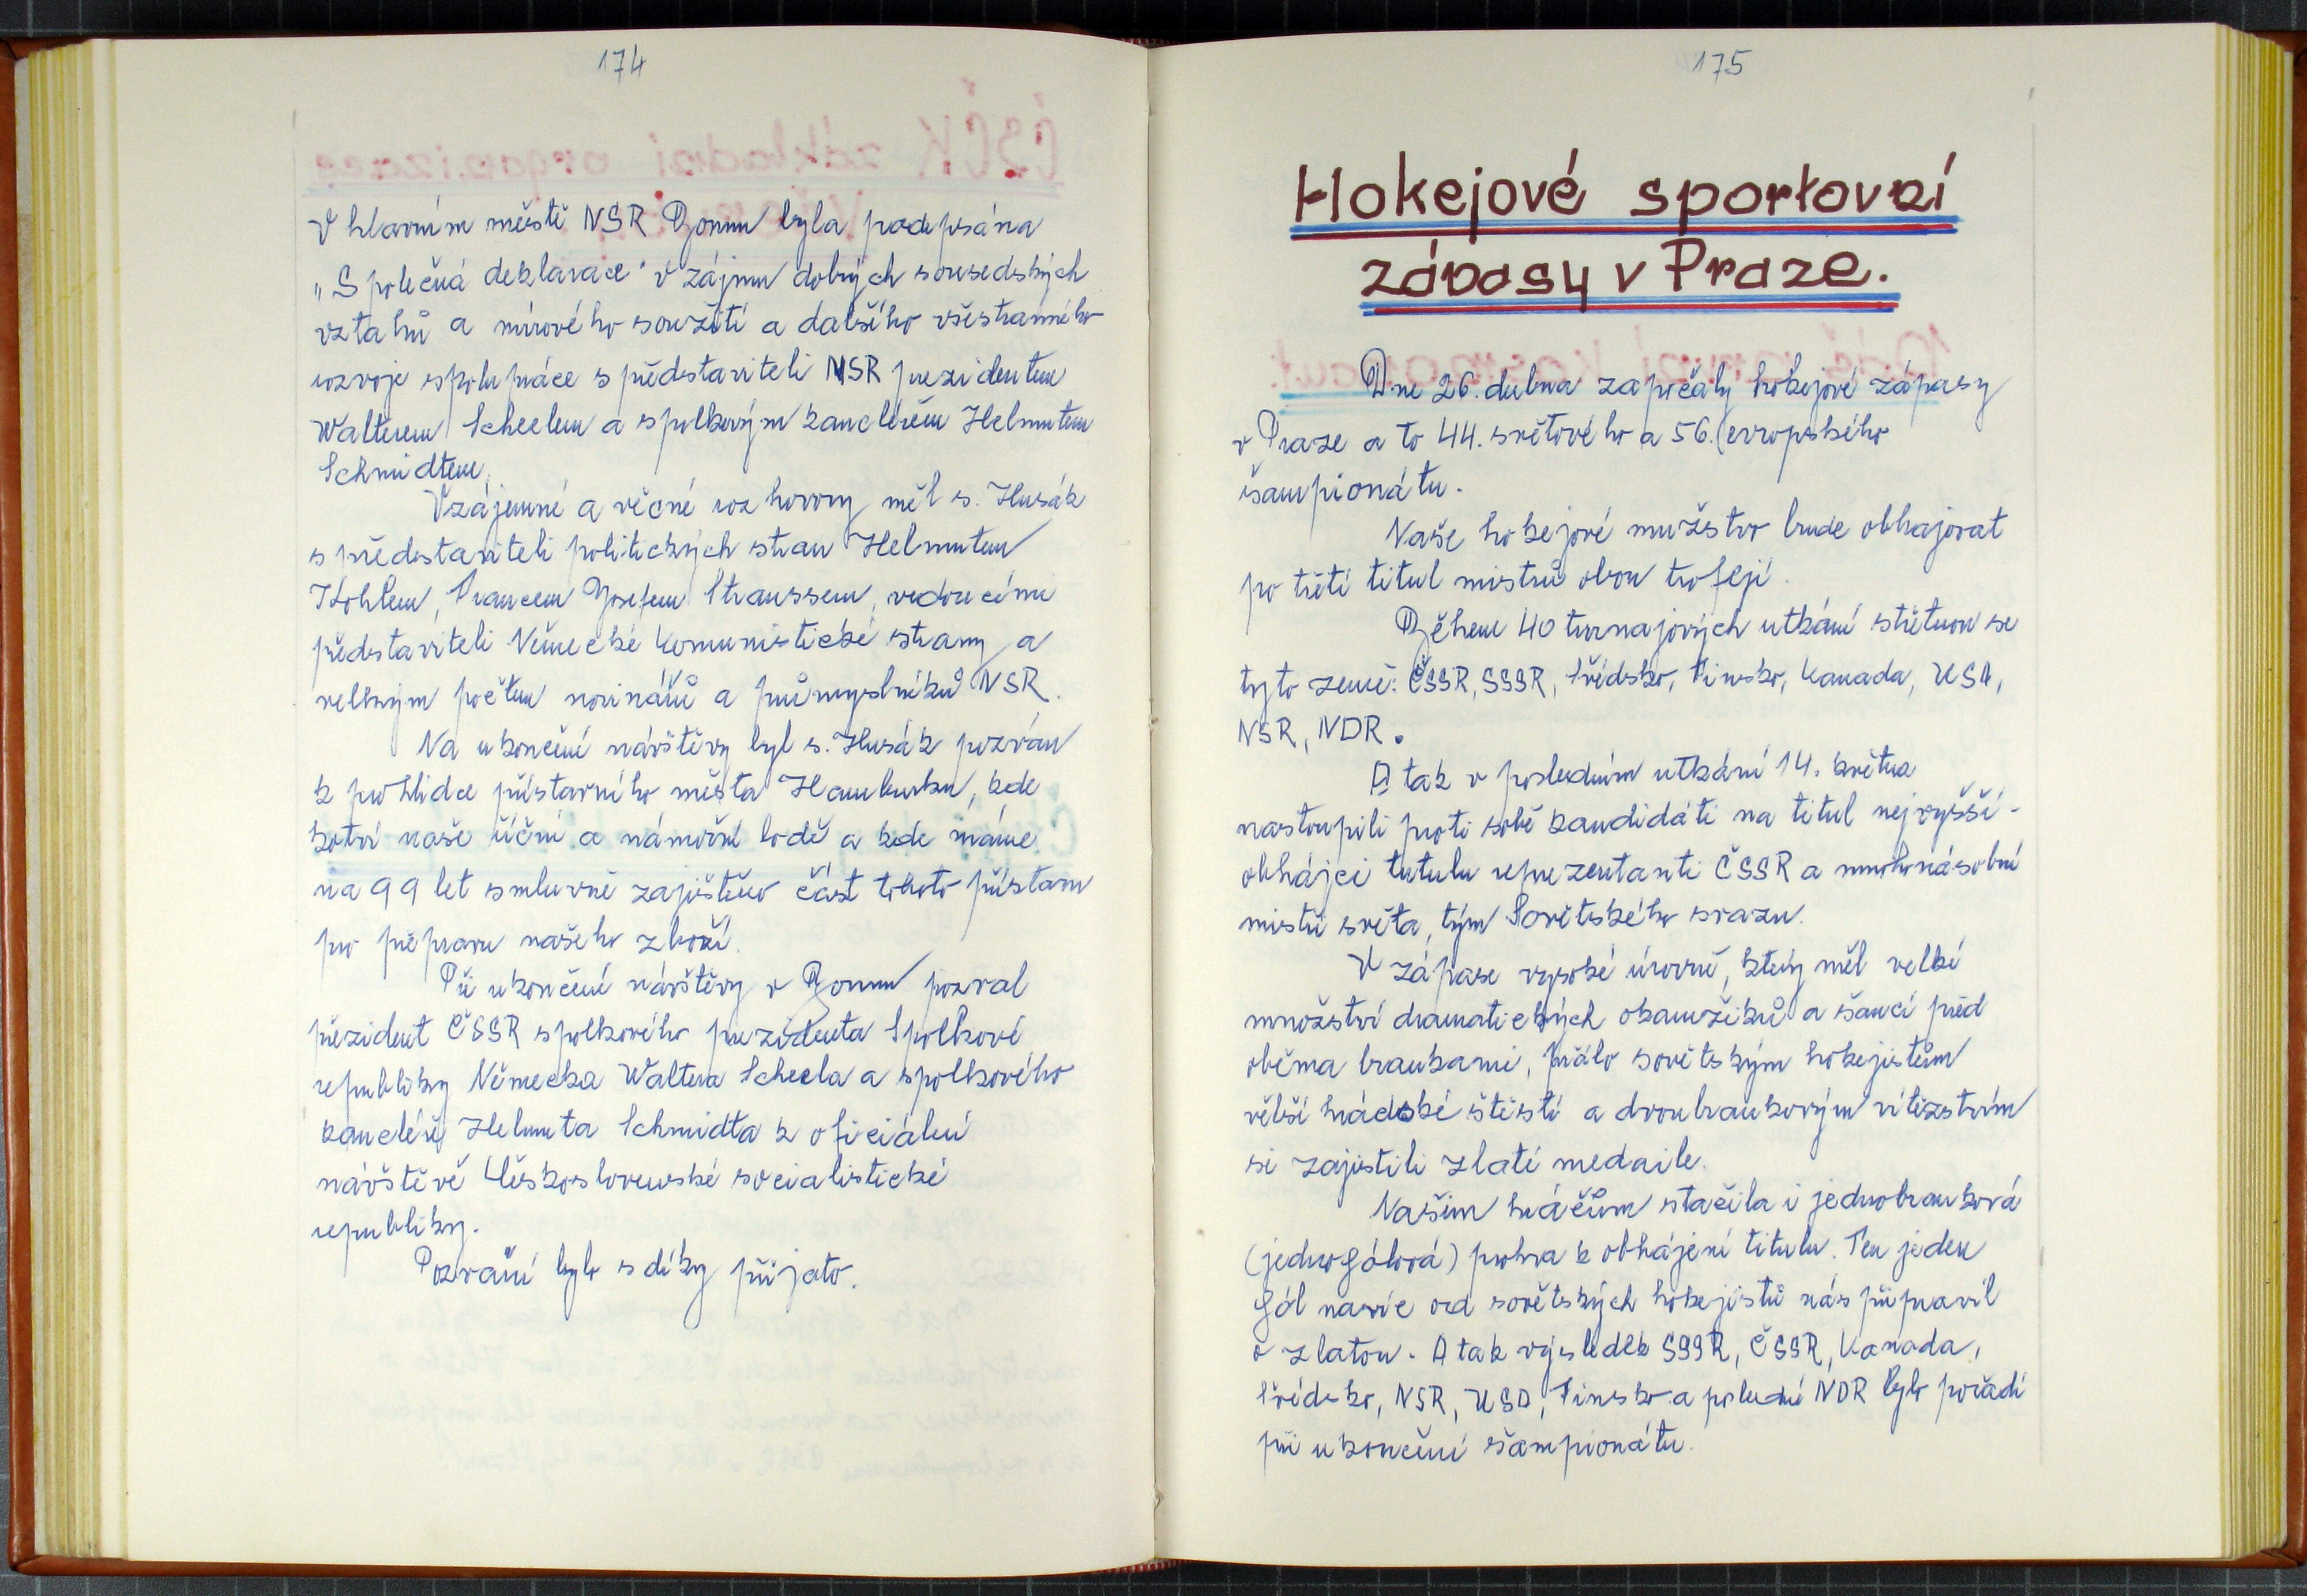 174
V hlavním městě NSR Bonnu byla podepsána
„Společná deklarace" v zájmu dobrých sousedských
vztahů a mírového soužití a dalšího všestranného
rozvoje spolupráce s představiteli NSR prezidentem
Walterem Scheelem a spolkovým kancléřem Helmutem
Schmidtem.
Vzájemné a věcné rozhovory měl s. Husák
s představiteli politických stran Helmutem
Kohlem, Francem Josefem Straussem, vedoucími
představiteli Německé komunistické strany a
velkým počtem novinářů a průmyslníků NSR.
Na ukončení návštěvy byl s. Husák pozván
k prohlídce přístavního města Hamburku, kde
kotví naše říční a námořní lodě a kde máme
na 99 let smluvně zajištěno část tohoto přístavu
pro přepravu našeho zboží.
Při ukončení návštěvy v Bonnu pozval
prezident ČSSR spolkového prezidenta Spolkové
republiky Německa Waltera Scheela a spolkového
kancléře Helmuta Schmidta k oficiální
návštěvě Československé socialistické
republiky.
Pozvání bylo s díky přijato.
175
Hokejové sportovní
zápasy v Praze.
Dne 26. dubna započaly hokejové zápasy
v Praze a to 44. světového a 56. evropského
šampionátu.
Naše hokejové mužstvo bude obhajovat
po třetí titul mistrů obou trofejí.
Během 40 turnajových utkání střetnou se
tyto země: ČSSR, SSSR, Švédsko, Finsko, Kanada, USA,
NSR, NDR.
A tak v posledním utkání 14. května
nastoupili proti sobě kandidáti na titul nejvyšší -
obhájci tutulu reprezentanti ČSSR a mnohonásobní
mistři světa, tým Sovětského svazu.
V zápase vysoké úrovně, který měl velké
množství dramatických okamžiků a šancí před
oběma brankami, přálo sovětským hokejistům
větší hráčské štěstí a dvoubrankovým vítězstvím
si zajistili zlaté medaile.
Našim hráčům stačila i jednobranková
(jednogólová) prohra k obhájení titulu. Ten jeden
gól navíc od sovětských hokejistů nás připravil
o zlatou. A tak výsledek SSSR, ČSSR, Kanada,
Švédsko, NSR, USA, Finsko a poslední NDR bylo pořadí
při ukončení šampionátu.